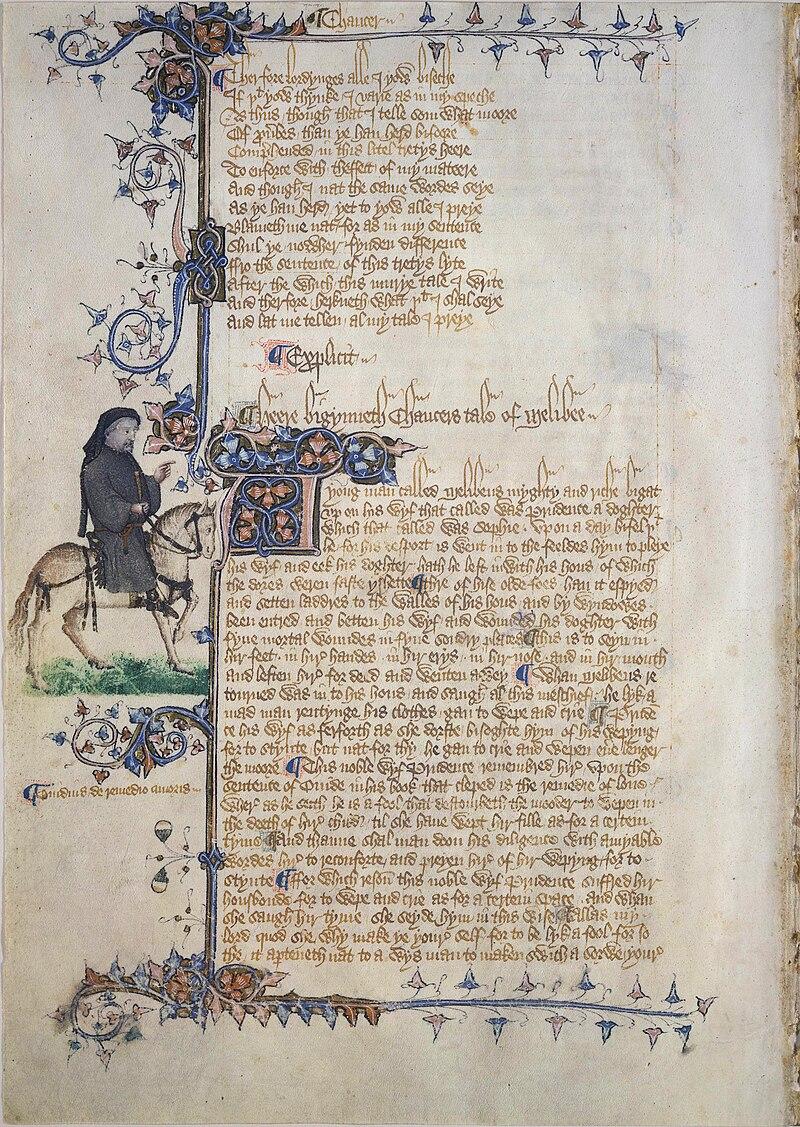 Chaucer
Therfore lordynges alle I yow biseche
If þt yow thynke I varie as in my speche
As thus though that I telle som what moore
Of prouerbes than ye han herd bifoore
Comprehended in this litel tretys heere
To enforce with theffect of my mateere
And though I nat the same wordes seye
As ye han herd yet to yow alle I preye
Blameth me nat for as in my sentence
Shul ye nowher fynden difference
ffro the sentence of this tretys lyte
After the which this murye tale I write
And therfore herkneth what þt I shal seye
And lat me tellen al my tale I preye
Explicit
Heere bigynneth Chaucers tale of Melibee
A yong man called Melibeus myghty and riche bigat
vp on his wyf that called was Prudence a doghter
which that called was Sophie. Vpon a day bifel þt
he for his desport is went in to the feeldes hym to pleye
his wyf and eek his doghter hath he left inwith his hous of which
the dores weren faste yshette Thre of hise olde foes han it espyed
and setten laddres to the walles of his hous and by wyndowes
been entred and betten his wyf and wounded his doghter with
fyue mortal woundes in fyue sondry places This is to seyn in
hir feet. in hir handes. in hir erys. in hir nose. and in hir mouth
and leften hir for deed and wenten awey Whan Melibeus re
tourned was in to his hous and saugh al this meschief. he lyk a
mad man rentynge his clothes. gan to wepe and crie Pruden
ce his wyf as ferforth as she dorste bisoghte hym of his wepyng
for to stynte but nat for thy he gan to crie and wepen euere lenger
the moore This noble wyf Prudence remembred hir vpon the
sentence of Ouide in his book that cleped is the remedie of loue
Ouidius de remedio amoris
wher as he seith he is a fool that destourbeth the mooder to wepen in
the deeth of hir child til she haue wept hir fille as for a certein
tyme And thanne shal man doon his diligence with amyable
wordes hir to reconforte and preyen hir of hir wepyng for to
stynte ffor which reson this noble wyf Prudence suffred hir
housbonde for to wepe and crie as for a certein space. And whan
she saugh hir tyme she seyde hym in this wise Allas my
lord quod she why make ye youre self for to be lyk a fool for so
the it aperteneth nat to a wys man to maken swich a sorwe youre